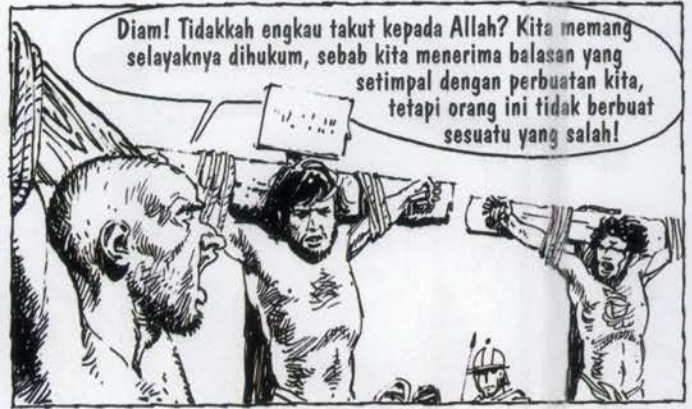 Diam! Tidakkah engkau takut kepada Allah? Kita memang
selayaknya dihukum, sebab kita menerima balasan yang
setimpal dengan perbuatan kita,
tetapi orang ini tidak berbuat
sesuatu yang salah!